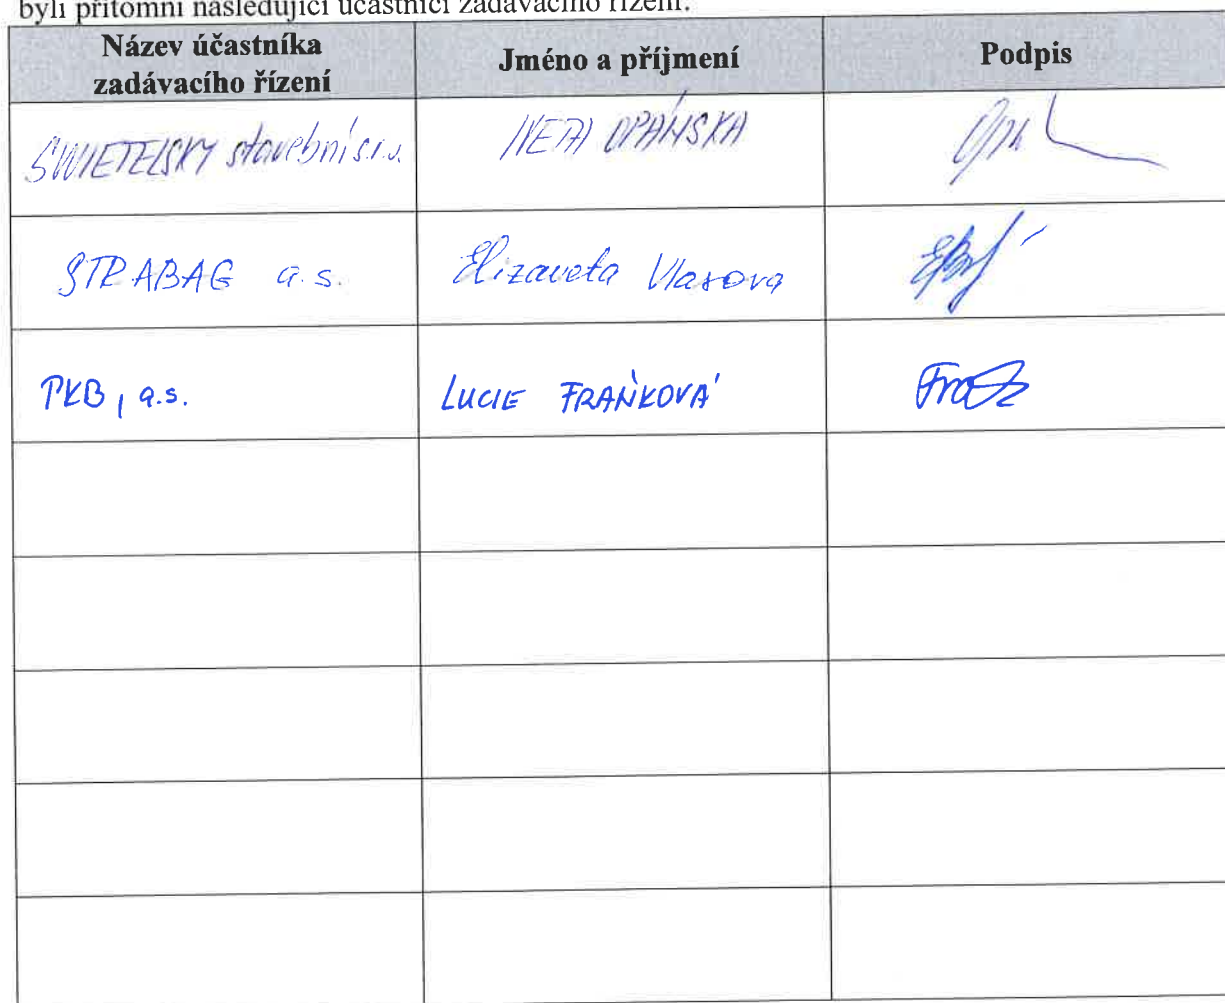 byli přítomni následující účastníci zadávacího řízení:
Název účastníka
zadávacího řízení
Jméno a příjmení
Podpis
SWIETELSKY stavební s.r.o.
IVETA OPÁNSKÁ
STRABAG a.s.
Elizaveta Vlasova
PKB, a.s.
LUCIE FRAŇKOVÁ